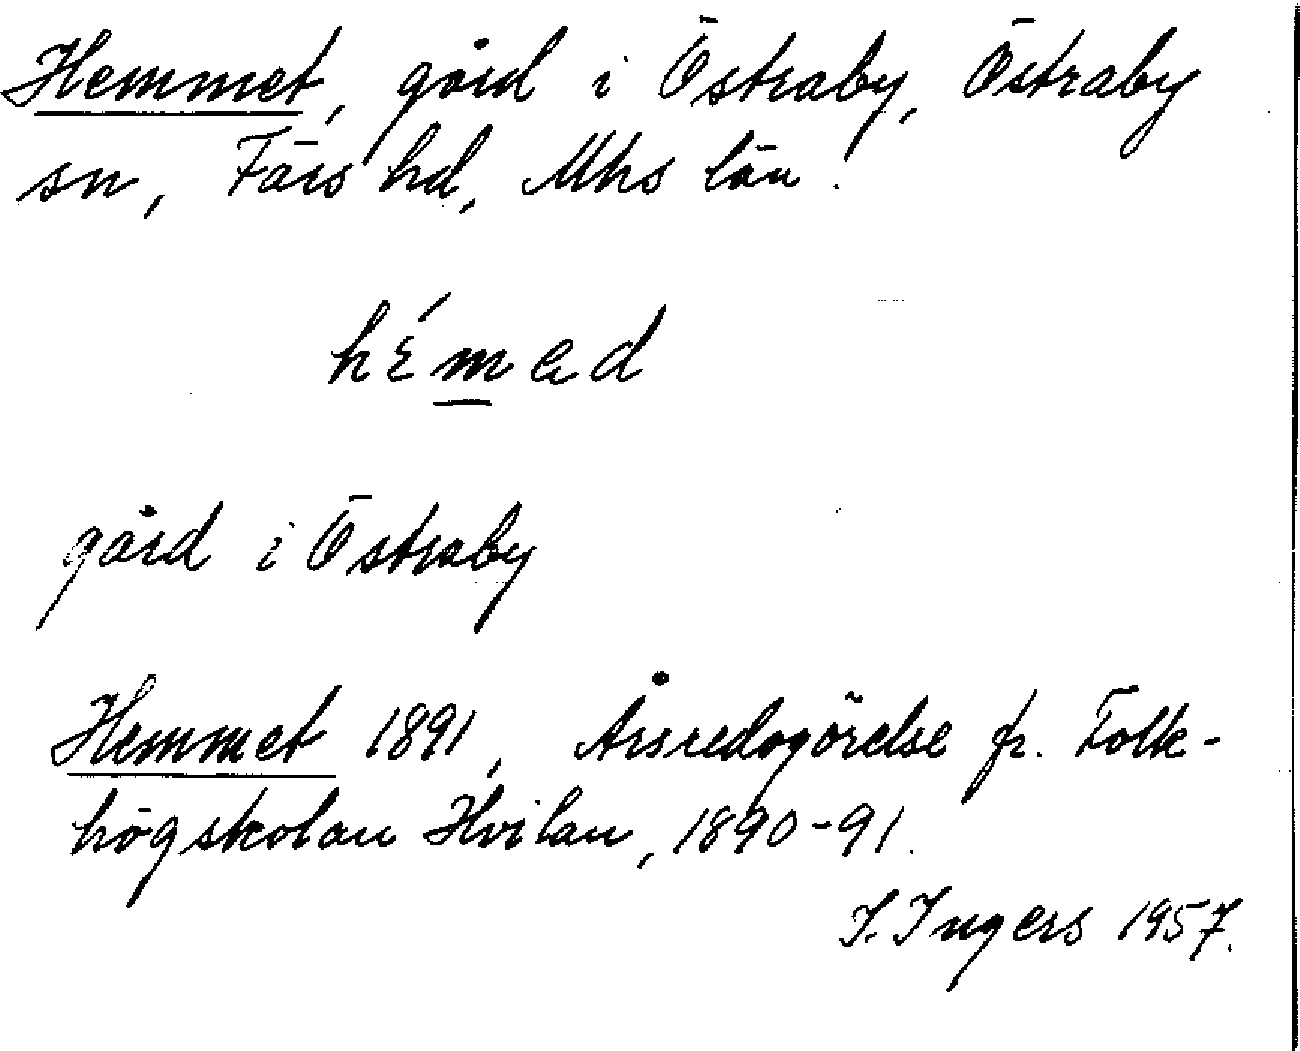 Hemmet, gård i Östraby, Östraby
sn, Färs hd, Mhs län.
hɛ́mad
gård i Östraby
Hemmet 1891, Årsredogörelse fr. Folk-
högskolan Hvilan, 1890-91.
I. Ingers 1957.